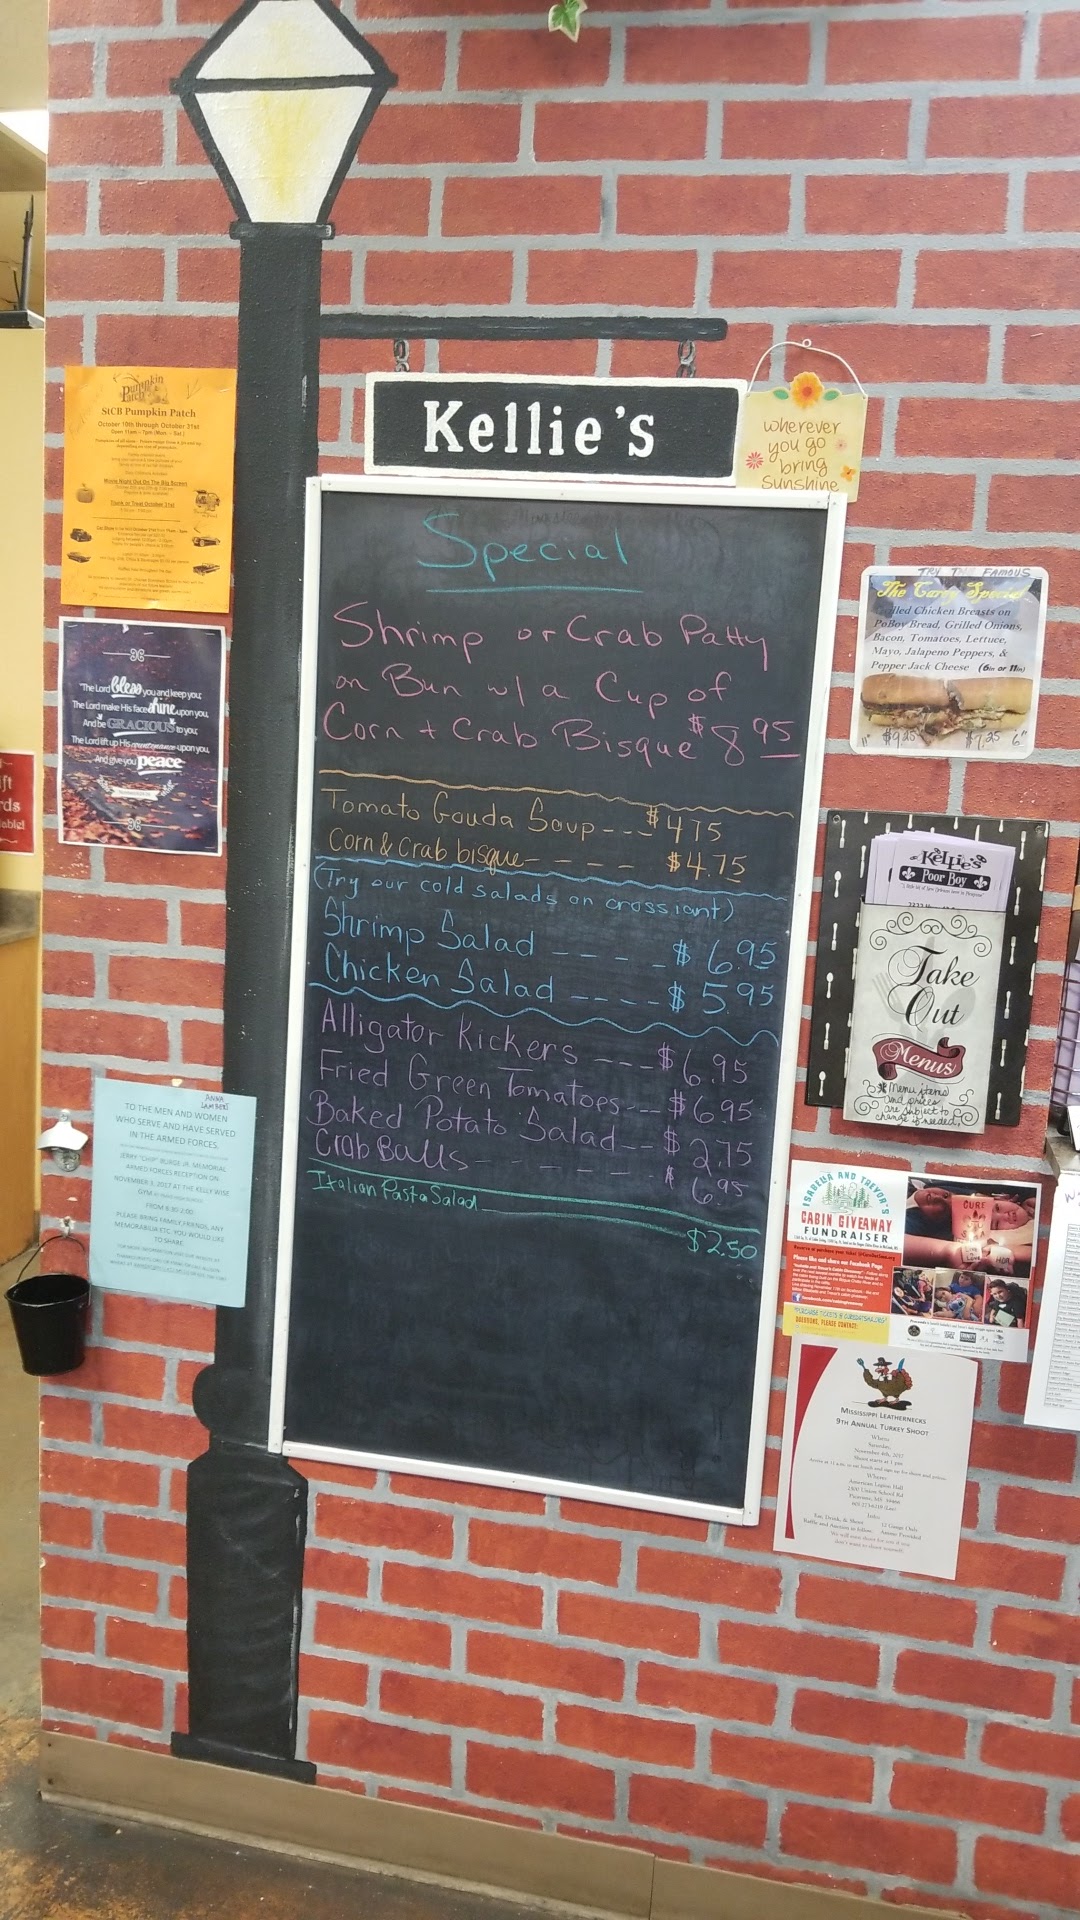 Kellie's
wherever
you go
bring
sunshine
Special
Shrimp or Crab Patty
on Bun w/ a Cup of
Corn + Crab Bisque $8.95
Tomato Gouda Soup --- $4.75
Corn & Crab bisque - - - - - $4.75
(Try our cold salads on crossiant)
Shrimp Salad - - - - $6.95
Chicken Salad - - - - $5.95
Alligator Kickers - - - $6.95
Fried Green Tomatoes -- $6.95
Baked Potato Salad - - $2.75
Crab Balls - - - - - $6.95
Italian Pasta Salad
$2.50
Pumpkin
Patch
StCB Pumpkin Patch
October 10th through October 31st
Open 11am - 7pm (Mon - Sat)
Movie Night Out On The Big Screen
Trunk or Treat October 31st
"The Lord bless you and keep you;
The Lord make His face shine upon you,
And be GRACIOUS to you;
The Lord lift up His countenance upon you,
And give you peace
ANNA
LAMBERT
TO THE MEN AND WOMEN
WHO SERVE AND HAVE SERVED
IN THE ARMED FORCES.
JERRY "CHIP" BURGE JR. MEMORIAL
ARMED FORCES RECEPTION ON
NOVEMBER 3, 2017 AT THE KELLY WISE
GYM
FROM 8:30-2:00
PLEASE BRING FAMILY, FRIENDS, ANY
MEMORABILIA ETC. YOU WOULD LIKE
TO SHARE
TRY THE FAMOUS
The Carey Special
Grilled Chicken Breasts on
PoBoy Bread, Grilled Onions,
Bacon, Tomatoes, Lettuce,
Mayo, Jalapeno Peppers, &
Pepper Jack Cheese (6in or 11in)
11" $9.25 $7.25 6"
Kellie's
Poor Boy
Take
Out
Menus
* Menu items
and prices
are subject to
change if needed.
ISABELLA AND TREVOR'S
CABIN GIVEAWAY
FUNDRAISER
Please like and share our Facebook Page
CURE
MISSISSIPPI LEATHERNECKS
9TH ANNUAL TURKEY SHOOT
When:
Saturday,
November 4th, 2017
Shoot starts at 1 pm
Where:
American Legion Hall
Info:
12 Gauge Only
Ammo Provided